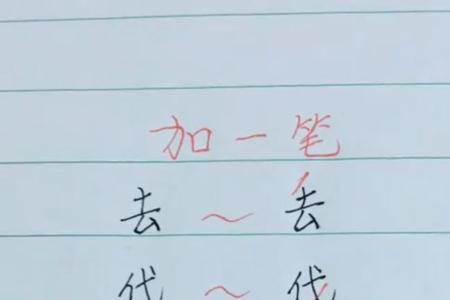 加一笔
去～丢
代～伐